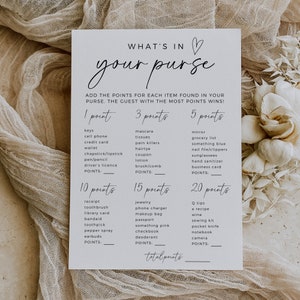 WHAT'S IN
your purse
ADD THE POINTS FOR EACH ITEM FOUND IN YOUR
PURSE. THE GUEST WITH THE MOST POINTS WINS!
1 point
keys
cell phone
credit card
wallet
chapstick/lipstick
pen/pencil
driver's licence
POINTS:
3 points
mascara
tissues
pain killers
hairtie
coupon
lotion
brush/comb
POINTS:
5 points
mirror
grocery list
something blue
nail file/clippers
sunglasses
hand sanitizer
business card
POINTS:
10 points
receipt
toothbrush
library card
bandaid
toothpick
pepper spray
earbuds
POINTS:
15 points
jewelry
phone charger
makeup bag
passport
something pink
checkbook
deodorant
POINTS:
20 points
Q tips
a recipe
wine
sewing kit
pocket knife
notebook
camera
POINTS:
total points